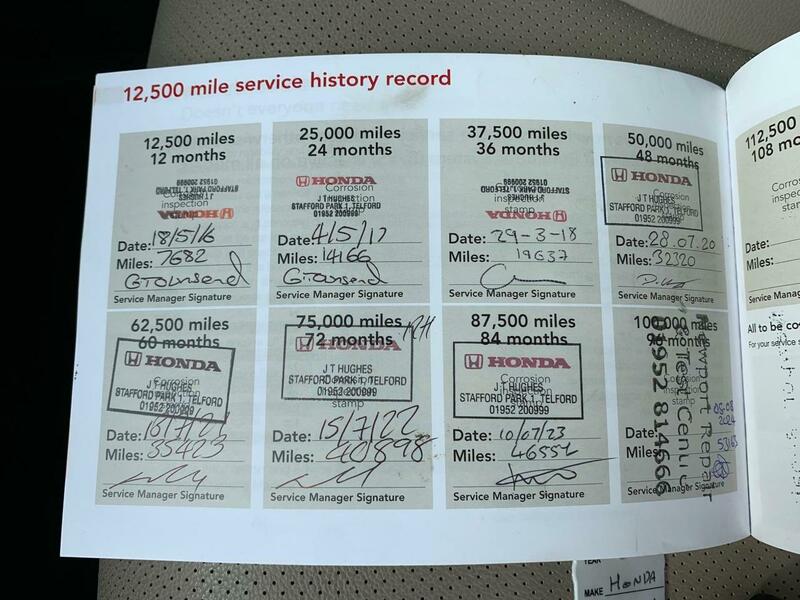 12,500 mile service history record
12,500 miles
12 months
STAFFORD PARK 1, TELFORD
01952 200999
J T HUGHES
Corrosion
inspection
HONDA
Date: 18/5/16
Miles: 7682
GTownsend
Service Manager Signature
25,000 miles
24 months
HONDA
Corrosion
J T HUGHES
STAFFORD PARK 1, TELFORD
01952 200999
Date: 4/5/17
Miles: 14166
GTownsend
Service Manager Signature
37,500 miles
36 months
01952 200999
STAFFORD PARK 1, TELFORD
J T HUGHES
Corrosion
inspection
stamp
HONDA
Date: 29-3-18
Miles: 19637
Service Manager Signature
50,000 miles
48 months
HONDA
Corrosion
J T HUGHES
STAFFORD PARK 1, TELFORD
01952 200999
Date: 28.07.20
Miles: 32320
Service Manager Signature
62,500 miles
60 months
HONDA
Corrosion
J T HUGHES
STAFFORD PARK 1, TELFORD
01952 200999
Date: 16/7/21
Miles: 35423
Service Manager Signature
75,000 miles
72 months
HONDA
J T HUGHES
STAFFORD PARK 1, TELFORD
01952 200999
stamp
Date: 15/7/22
Miles: 40898
Service Manager Signature
87,500 miles
84 months
HONDA
Corrosion
J T HUGHES
STAFFORD PARK 1, TELFORD
01952 200999
stamp
Date: 10/07/23
Miles: 46552
Service Manager Signature
100,000 miles
96 months
Newport Repair
& Test Centre
01952 814666
Corrosion
stamp
Date: 05-08
2024
Miles: 53163
Service Manager Signature
112,500
108 mo
Corros
inspec
stam
Date:
Miles:
Service Man
All to be co
For your service s
YEAR
MAKE HONDA